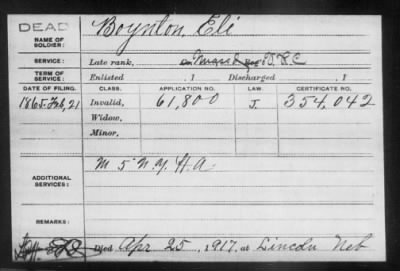 DEAD Boynton, Eli
NAME OF SOLDIER:
SERVICE: Late rank,
TERM OF SERVICE: Enlisted , 1 Discharged , 1
DATE OF FILING. CLASS. APPLICATION NO. LAW. CERTIFICATE NO.
1865. Feb, 21 Invalid, 61,800 J. 354,042
Widow,
Minor,
ADDITIONAL SERVICES: M 5 N.Y. H.A.
REMARKS:
Died Apr 25, 1917. at Lincoln Neb